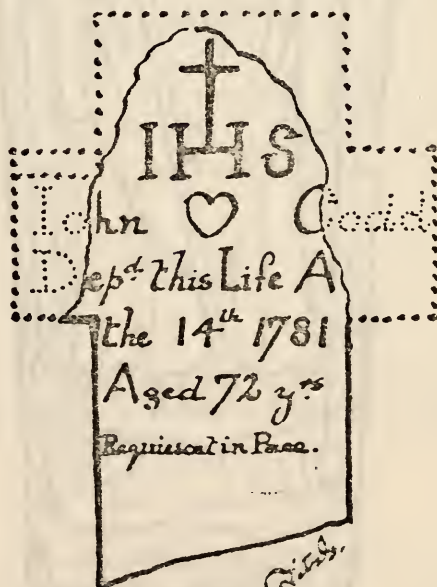 IHS
John Codd
Depd. this Life A
the 14th 1781
Aged 72 yrs
Requiescat in Pace.